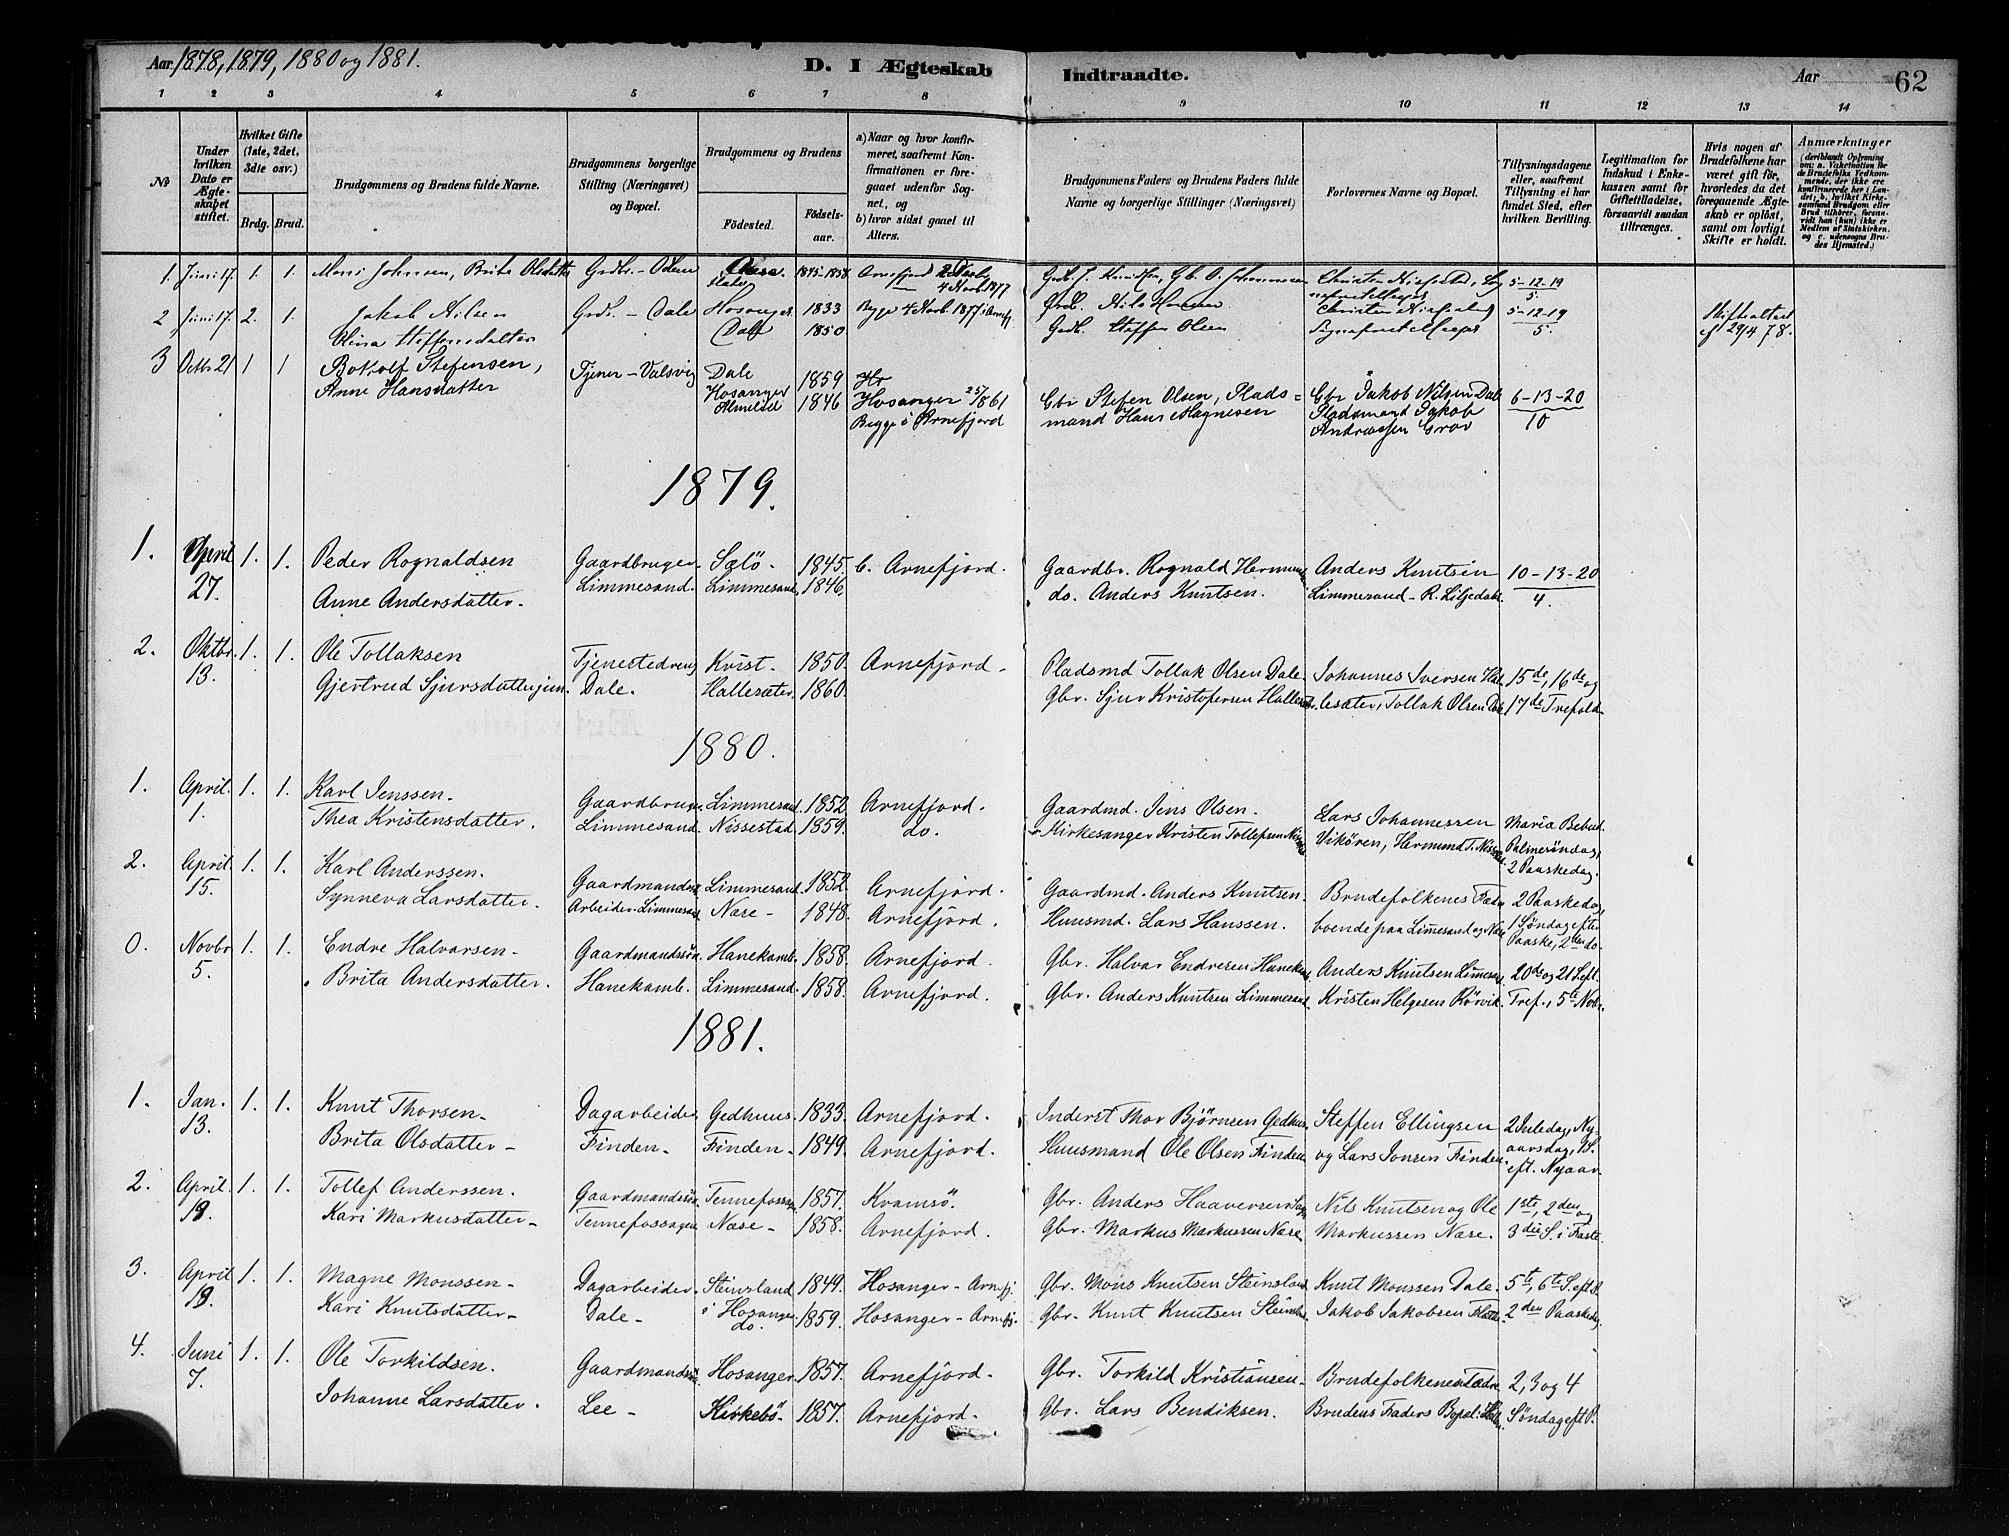 Aar 1878, 1879, 1880 og 1881.
D. I Ægteskab Indtraadte.
Aar 62
1 2 3 4 5 6 7 8 9 10 11 12 13 14
No
Under hvilken Dato er Ægteskabet stiftet.
Hvilket Gifte (1ste, 2det, 3die osv.)
Brdg. Brud.
Brudgommens og Brudens fulde Navne.
Brudgommens borgerlige Stilling (Næringsvei) og Bopæl.
Brudgommens og Brudens
Fødested.
Fødselsaar.
a) Naar og hvor konfirmeret, saafremt Konfirmationen er foregaaet udenfor Sognet, og
b) hvor sidst gaaet til Alters.
Brudgommens Faders og Brudens Faders fulde Navne og borgerlige Stillinger (Næringsvei)
Forlovernes Navne og Bopæl.
Tillysningsdagene eller, saafremt Tillysning ei har fundet Sted, efter hvilken Bevilling.
Legitimation for Indskud i Enkekassen samt for Giftetilladelse, forsaavidt saadan tiltrænges.
Hvis nogen af Brudefolkene har været gift før, hvorledes da det foregaaende Ægteskab er opløst, samt om lovligt Skifte er holdt.
Anmærkninger
1. Juni 17. 1. 1. Mons Johnsen, Brita Olsdatter Grdbr. - 1845 - 1858 Arnefjord 5-12-19
4 Novb 1877 5
2 Juni 17. 2. 1. Jakob Nilsen Grdbr. - Dale Hosanger 1833 Begge 4 Novb. 1877 i Arnefj. Grdb. 5-12-19
Steffensdatter Dale 1850 Grdb. Steffen Olsen 5.
29/4 78.
3 Octbr 21 1 1 Botolf Stefensen, Tjener - Valsvig Dale 1859
Anne Hansdatter Hosanger 1846 Hosanger 1861 Gbr Stefen Olsen, Plads= Gbr Jakob Nilsen Dale 6-13-20
Begge i Arnefjord mand Hans Magnesen Pladsmand Jakob 10
Andreassen Grov
1879.
1. April 1. 1. Peder Rognaldsen Gaardbruger Sælö - 1845. b. Arnefjord. Gaardbr. Rognald Hermuns Anders Knutsen 10-13-20
27. Anne Andersdatter. Limmesand. Limmesand, 1846. do. Anders Knutsen. Limmesand - R. Liljedahl. 4.
2. Oktbr. 1. 1. Ole Tollaksen Tjenestedreng Kvist - 1850. Arnefjord - Pladsmd Tollak Olsen Dale. Johannes Iversen Hal- 15de, 16de og
13. Gjertrud Sjursdatter jun. Dale. Hallesæter. 1860. Gbr. Sjur Kristofersen Hallesæt. lesæter, Tollak Olsen Dale 17de Trefold-
1880.
1. April. 1. 1. Karl Jenssen. Gaardbruger. Limmesand. 1852. Arnefjord. Gaardmd. Jens Olsen. Lars Johannessen Maria Bebud.
1. Thea Kristensdatter. Limmesand. Nissestad. 1859. do. Kirkesanger Kristen Tollefsen Nissest. Vikören, Hermund T. Nissest. Palmesöndag,
2 Paaskedag.
2. April. 1. 1. Karl Anderssen. Gaardmandssøn Limmesand. 1852. Arnefjord. Gaardmd. Anders Knutsen. Brudefolkenes Fædre 2 Paaskedag,
15. Synneva Larsdatter. Arbeider - Limmesand Næse - 1848. Arnefjord. Huusmd. Lars Hanssen. boende paa Limesand og Næse 1 Söndag efter
Paaske, 2den do.
0. Novbr. 1. 1. Endre Halvarsen - Gaardmandssön Hanekamb. 1858. Arnefjord. Gbr. Halvar Endresen Hanekam Anders Knutsen Limesand 20de og 21 S. eft.
5. Brita Andersdatter. Hanekamb. Limmesand. 1858. Arnefjord. Gbr. Anders Knutsen Limmesand. Kristen Helgesen Rörvik. Tref., 5te Nobr.
1881.
1. Jan. 1. 1. Knut Thorsen - Dagarbeider. Gedhuus. 1833. Arnefjord. Inderst Thor Björnsen Gedhus. Steffen Ellingsen 2 Juledag, Ny-
13. Brita Olsdatter - Finden - Finden - 1849. Arnefjord. Huusmand Ole Olsen Finden og Lars Jonsen Finden. aarsdag, 1 S.
eft. Nyaar.
2. April. 1. 1. Tollef Anderssen. Gaardmandssön Tennefossen 1857. Kvamsö. Gbr. Anders Haaversen Nils Knutsen og Ole 1ste, 2den og
19. Kari Markusdatter - Tennefossagen Næse - 1858. Arnefjord. Gbr. Markus Markussen Næse Markussen Næse. 3die S. i Faste.
3. April 1. 1. Magne Monssen - Dagarbeider. Steinsland 1849. Hosanger - Arnefj. Gbr. Mons Knutsen Steinsland Knut Monssen Dale. 5te, 6te S. eft P.
19. Kari Knutsdatter - Dale - i Hosanger do. 1859. Hosanger - Arnefj. Gbr. Knut Knutsen Steinsland Jakob Jakobsen 2den Paaskedag.
4. Juni 1. 1. Ole Torkildsen. Gaardmandssön Hosanger 1857. Arnefjord. Gbr. Torkild Kristiansen - Brudefolkenes Fædre 2, 3 og 4
7. Johanne Larsdatter. Lee - Kirkebö - 1857. Arnefjord. Gbr. Lars Bendiksen. Brudens Faders Bopæl: Söndag eft P.